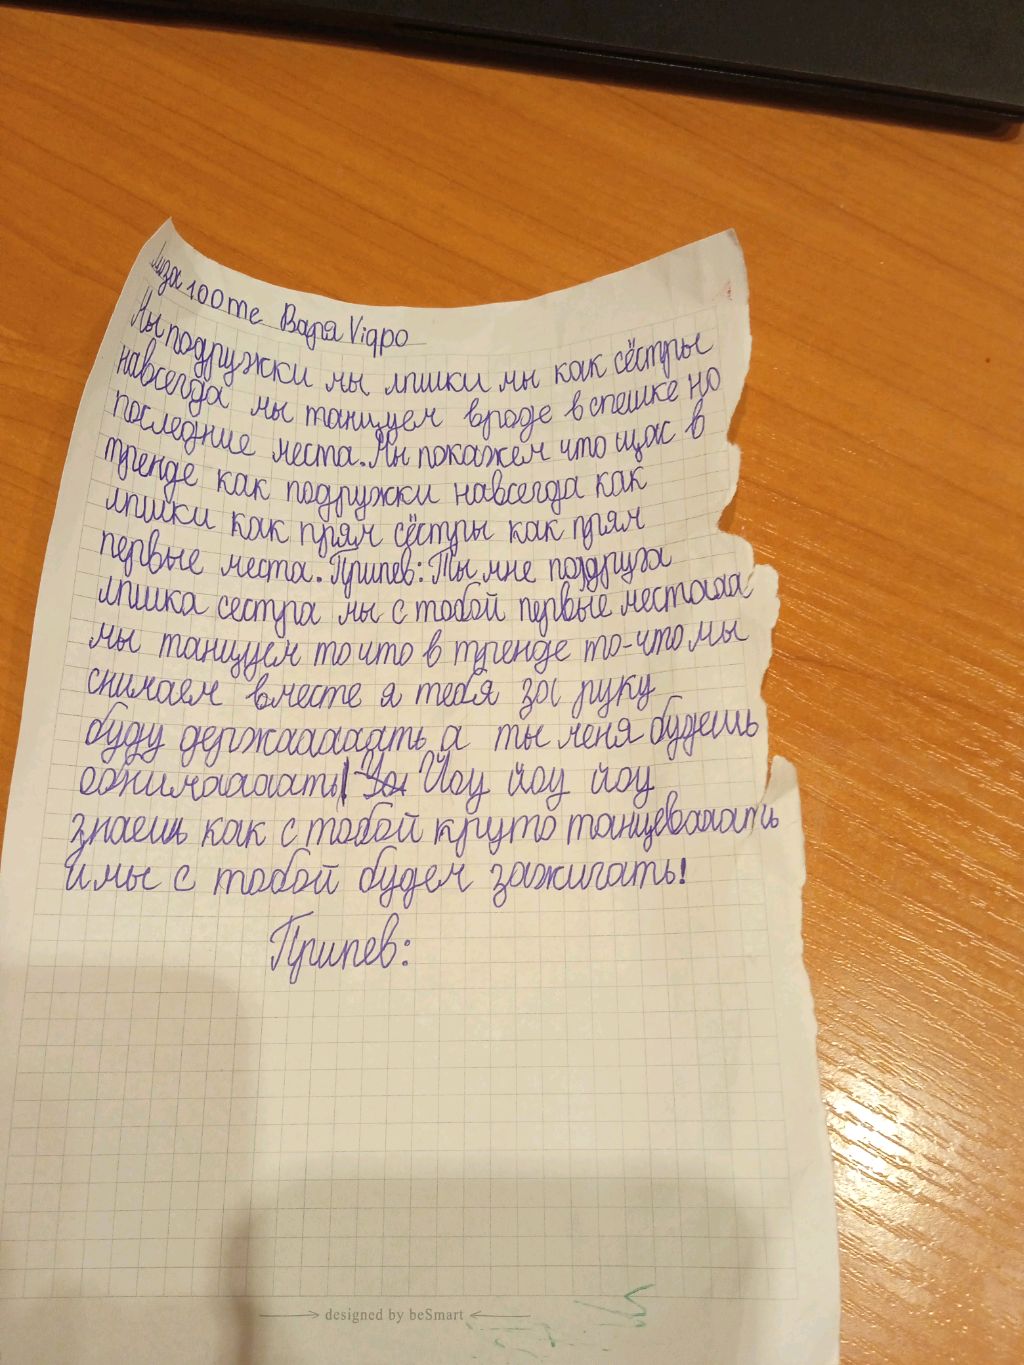 Лиза 100те Варя Viqpo
Мы подружки мы лпшки мы как сёстры
навсегда мы танцуем вроде в спешке но
последние места. Мы покажем что щас в
тренде как подружки навсегда как
лпшки как прям сёстры как прям
первые места. Припев: Ты мне подруга
лпшка сестра мы с тобой первые местааа
мы танцуем то что в тренде то-что мы
снимаем вместе я тебя за руку
буду держааааать а ты меня будешь
обнимааааать! Йоу йоу йоу
знаешь как с тобой круто танцеваааать
и мы с тобой будем зажигать!
Припев:
designed by beSmart